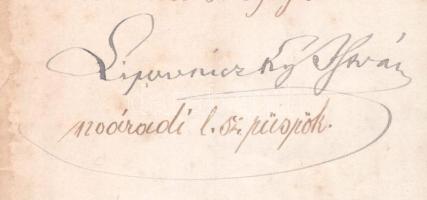 Lipovniczky István
nváradi l. sz. püspök.